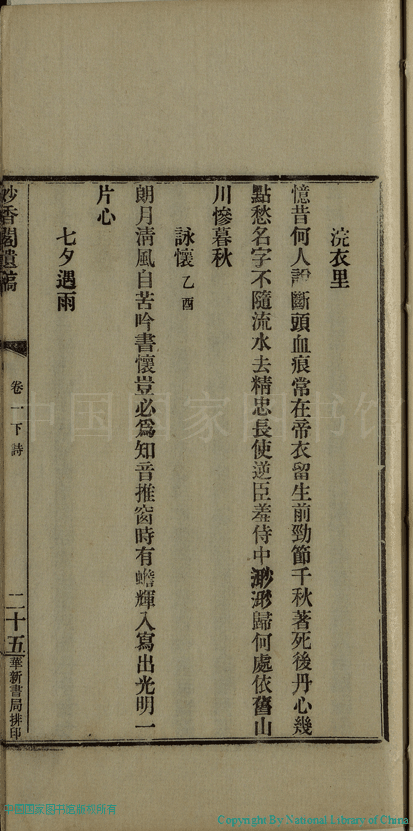 浣衣里
憶昔何人說斷頭血痕常在帝衣留生前勁節千秋著死後丹心幾
點愁名字不隨流水去精忠長使逆臣羞侍中渺渺歸何處依舊山
川慘暮秋
詠懷 乙酉
朗月清風自苦吟書懷豈必爲知音推窗時有蟾輝入寫出光明一
片心
七夕遇雨
妙香閣遺稿
卷一下 詩
二十五
華新書局排印
中国国家图书馆
中国国家图书馆版权所有
Copyright By National Library of China